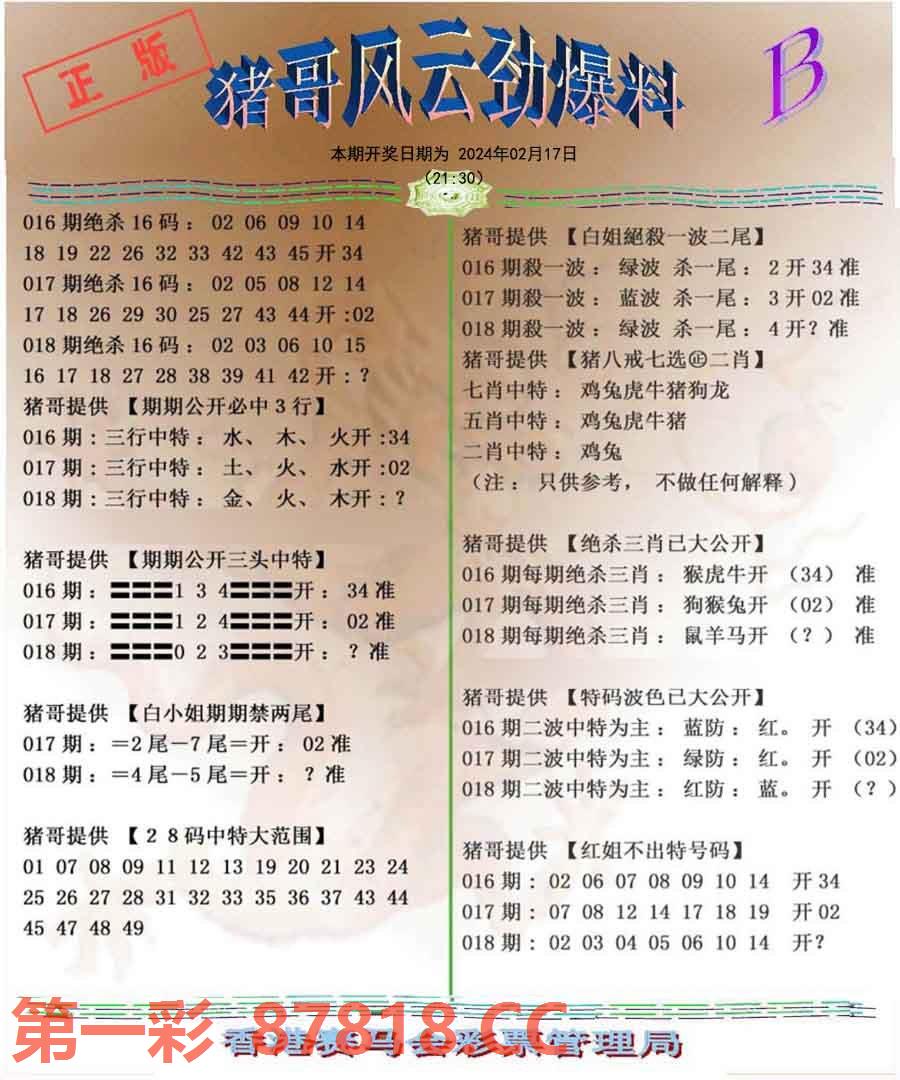 正版
猪哥风云劲爆料
B
本期开奖日期为 2024年02月17日
(21:30)
016 期绝杀 16 码： 02 06 09 10 14
18 19 22 26 32 33 42 43 45 开 34
017 期绝杀 16 码： 02 05 08 12 14
17 18 26 29 30 25 27 43 44 开 :02
018 期绝杀 16 码： 02 03 06 10 15
16 17 18 27 28 38 39 41 42 开：？
猪哥提供 【期期公开必中 3 行】
016 期：三行中特： 水、 木、 火开 :34
017 期：三行中特： 土、 火、 水开 :02
018 期：三行中特： 金、 火、 木开：？
猪哥提供 【期期公开三头中特】
016 期：〓〓〓1 3 4〓〓〓开： 34 准
017 期：〓〓〓1 2 4〓〓〓开： 02 准
018 期：〓〓〓0 2 3〓〓〓开： ？准
猪哥提供 【白小姐期期禁两尾】
017 期：＝2 尾－7 尾＝开： 02 准
018 期：＝4 尾－5 尾＝开： ？准
猪哥提供 【２８码中特大范围】
01 07 08 09 11 12 13 19 20 21 23 24
25 26 27 28 31 32 33 35 36 37 43 44
45 47 48 49
猪哥提供 【白姐絕殺一波二尾】
016 期殺一波： 绿波 杀一尾：2 开 34 准
017 期殺一波： 蓝波 杀一尾：3 开 02 准
018 期殺一波： 绿波 杀一尾：4 开？准
猪哥提供 【猪八戒七选㊣二肖】
七肖中特： 鸡兔虎牛猪狗龙
五肖中特： 鸡兔虎牛猪
二肖中特： 鸡兔
（注： 只供参考， 不做任何解释）
猪哥提供 【绝杀三肖已大公开】
016 期每期绝杀三肖： 猴虎牛开 （34） 准
017 期每期绝杀三肖： 狗猴兔开 （02） 准
018 期每期绝杀三肖： 鼠羊马开 （？） 准
猪哥提供 【特码波色已大公开】
016 期二波中特为主： 蓝防： 红。 开 （34）
017 期二波中特为主： 绿防： 红。 开 （02）
018 期二波中特为主： 红防： 蓝。 开 （？）
猪哥提供 【红姐不出特号码】
016 期： 02 06 07 08 09 10 14 开 34
017 期： 07 08 12 14 17 18 19 开 02
018 期： 02 03 04 05 06 10 14 开？
第一彩 87818.CC
香港赛马会彩票管理局